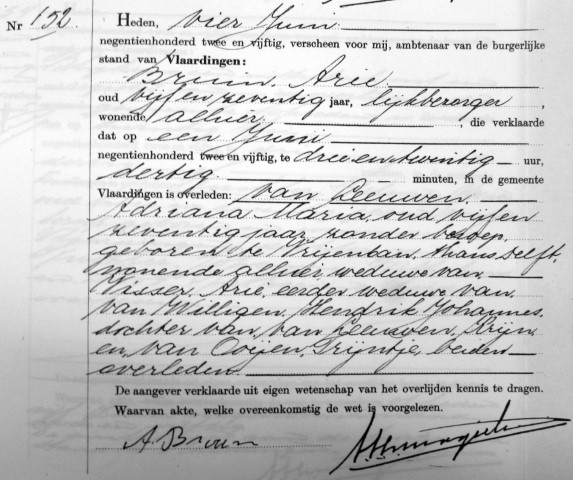 Nr 152
Heden, vier Juni
negentienhonderd twee en vijftig, verscheen voor mij, ambtenaar van de burgerlijke
stand van Vlaardingen:
Bruin, Arie
oud vijf en zeventig jaar, lijkbezorger,
wonende alhier, die verklaarde
dat op een Juni
negentienhonderd twee en vijftig, te drieentwintig uur,
dertig minuten, in de gemeente
Vlaardingen is overleden: van Leeuwen,
Adriana Maria, oud vijf en
zeventig jaar, zonder beroep,
geboren te Vrijenban, thans Delft,
wonende alhier, weduwe van
Visser, Arie, eerder weduwe van
van Willigen, Hendrik Johannes,
dochter van, van Leeuwen, Krijn
en, van Ooijen, Trijntje, beiden
overleden.
De aangever verklaarde uit eigen wetenschap van het overlijden kennis te dragen.
Waarvan akte, welke overeenkomstig de wet is voorgelezen.
A Bruin